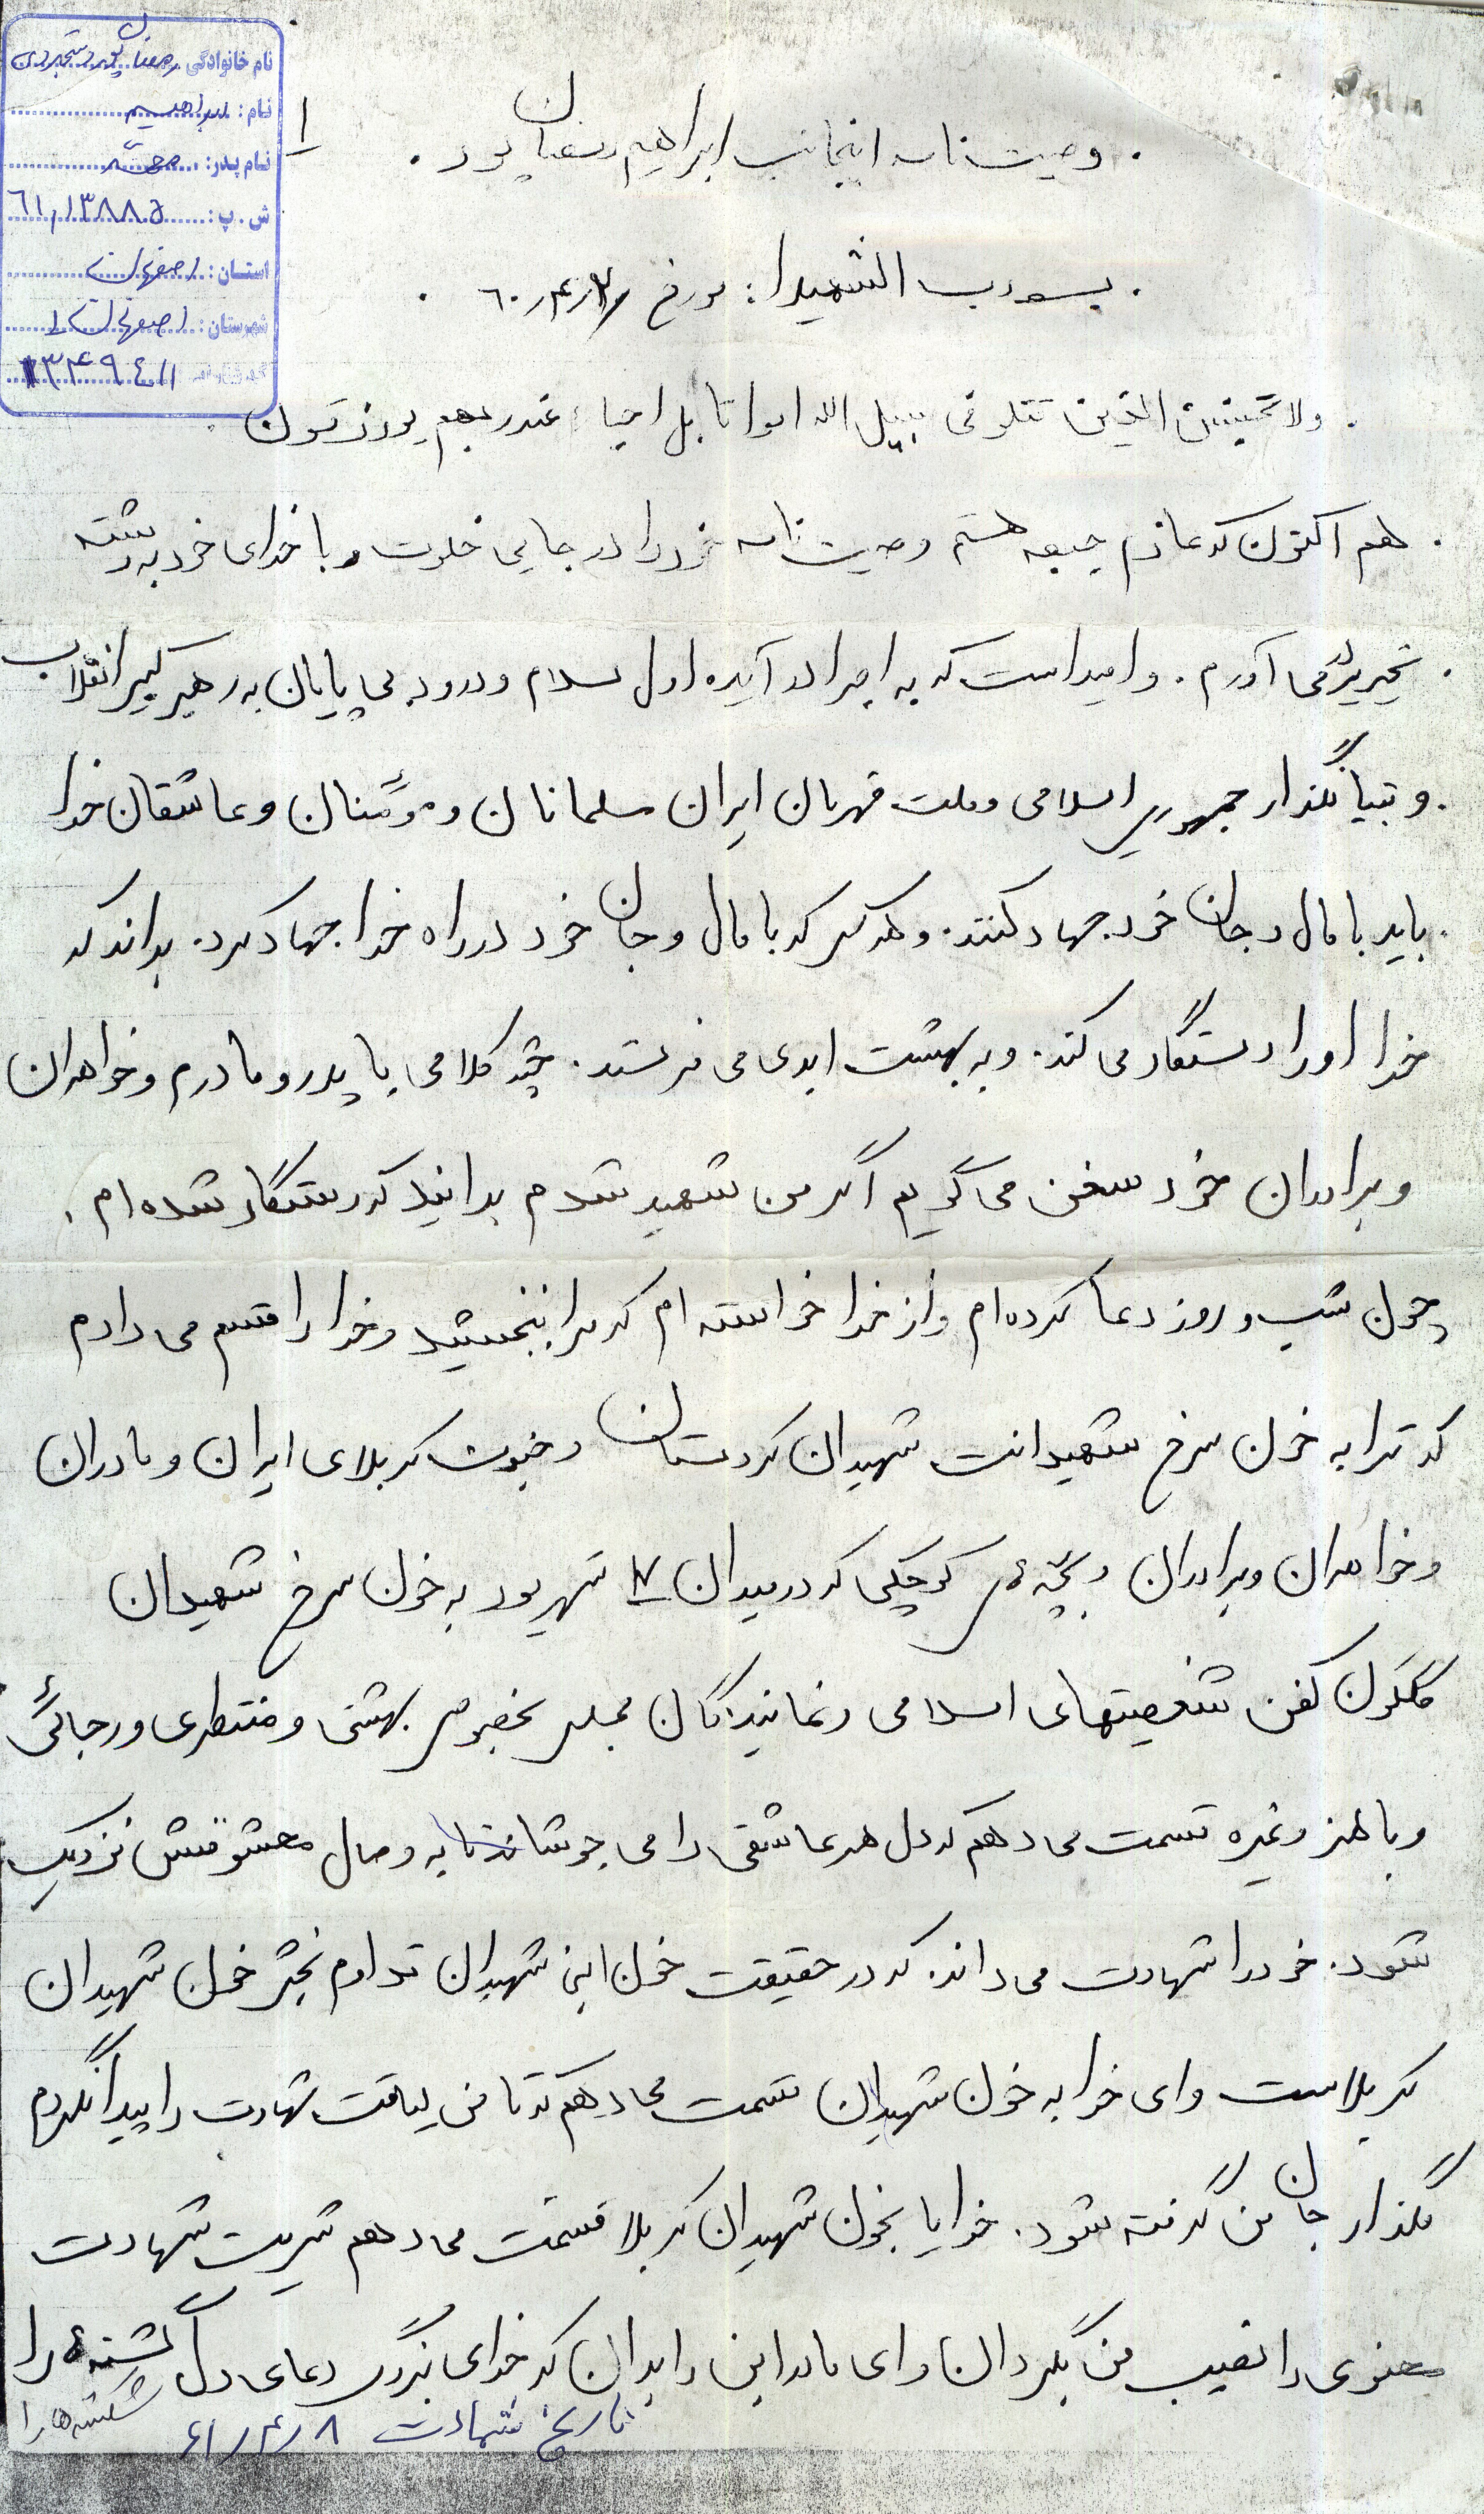 نام خانوادگی: رمضان پور دستجردی
نام: ابراهیم
نام پدر: محمد
ش. پ: ٦١,١٣٨٨٥
استان: اصفهان
شهرستان: اصفهان ١
١٣٤٩٤١١
١
. وصیت نامه اینجانب ابراهیم رمضان پور .
. بسم رب الشهدا: مورخ ٦٠,٤,
. ولا تحسبن الذین قتلو فی سبیل الله امواتا بل احیاء عندربهم یرزقون
. هم اکنون که عازم جبهه هستم وصیت نامه خود را در جایی خلوت و با خدای خود به رشته
. تحریر در می آورم. و امید است که به اجرا در آیده اول سلام و درود بی پایان به رهبر کبیر انقلاب
. و بنیانگذار جمهوری اسلامی و ملت قهرمان ایران مسلمانان و مؤمنان و عاشقان خدا
. باید با مال و جان خود جهاد کنند. و هر کس که با مال و جان خود در راه خدا جهاد کرد. بداند که
خدا او را رستگار می کند. و به بهشت ابدی می فرستد. چند کلامی با پدر و مادرم و خواهران
و برادران خود سخن می گویم اگر من شهید شدم بدانید که رستگار شده ام.
چون شب و روز دعا کرده ام و از خدا خواسته ام که مرا ببخشید و خدا را قسم می دادم
که ترا به خون سرخ شهیدانت شهیدان کردستان و جنوب کربلای ایران و مادران
و خواهران و برادران و بچه ء کوچکی که در میدان ١٧ شهریور به خون سرخ شهیدان
گلگون کفن شخصیتهای اسلامی و نمایندگان مجلس بخصوص بهشتی و منتظری و رجائی
و باهنر و غیره قسمت می دهم که دل هر عاشقی را می جوشاند تا به وصال معشوقش نزدیک
شود. خود را شهادت می داند. که در حقیقت خون این شهیدان تداوم بخش خون شهیدان
کربلاست و ای خدا به خون شهیدان قسمت می دهم که تا من لیاقت شهادت را پیدا نکردم
نگذار جان من گرفته شود. خدایا بخون شهیدان کربلا قسمت می دهم شربت شهادت
معنوی را نصیب من بگردان و ای مادر این را بدان که خدای بزرگ دعای دل شکسته ء را
شکسته ها را
تاریخ شهادت ٦١/٤/٨